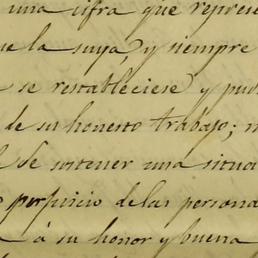 una cifra que represe
ue la suya, y siempre
se restableciese y pud
de su honesto trabajo; m
de sostener una situa
perjuicio de las persona
á su honor y buena